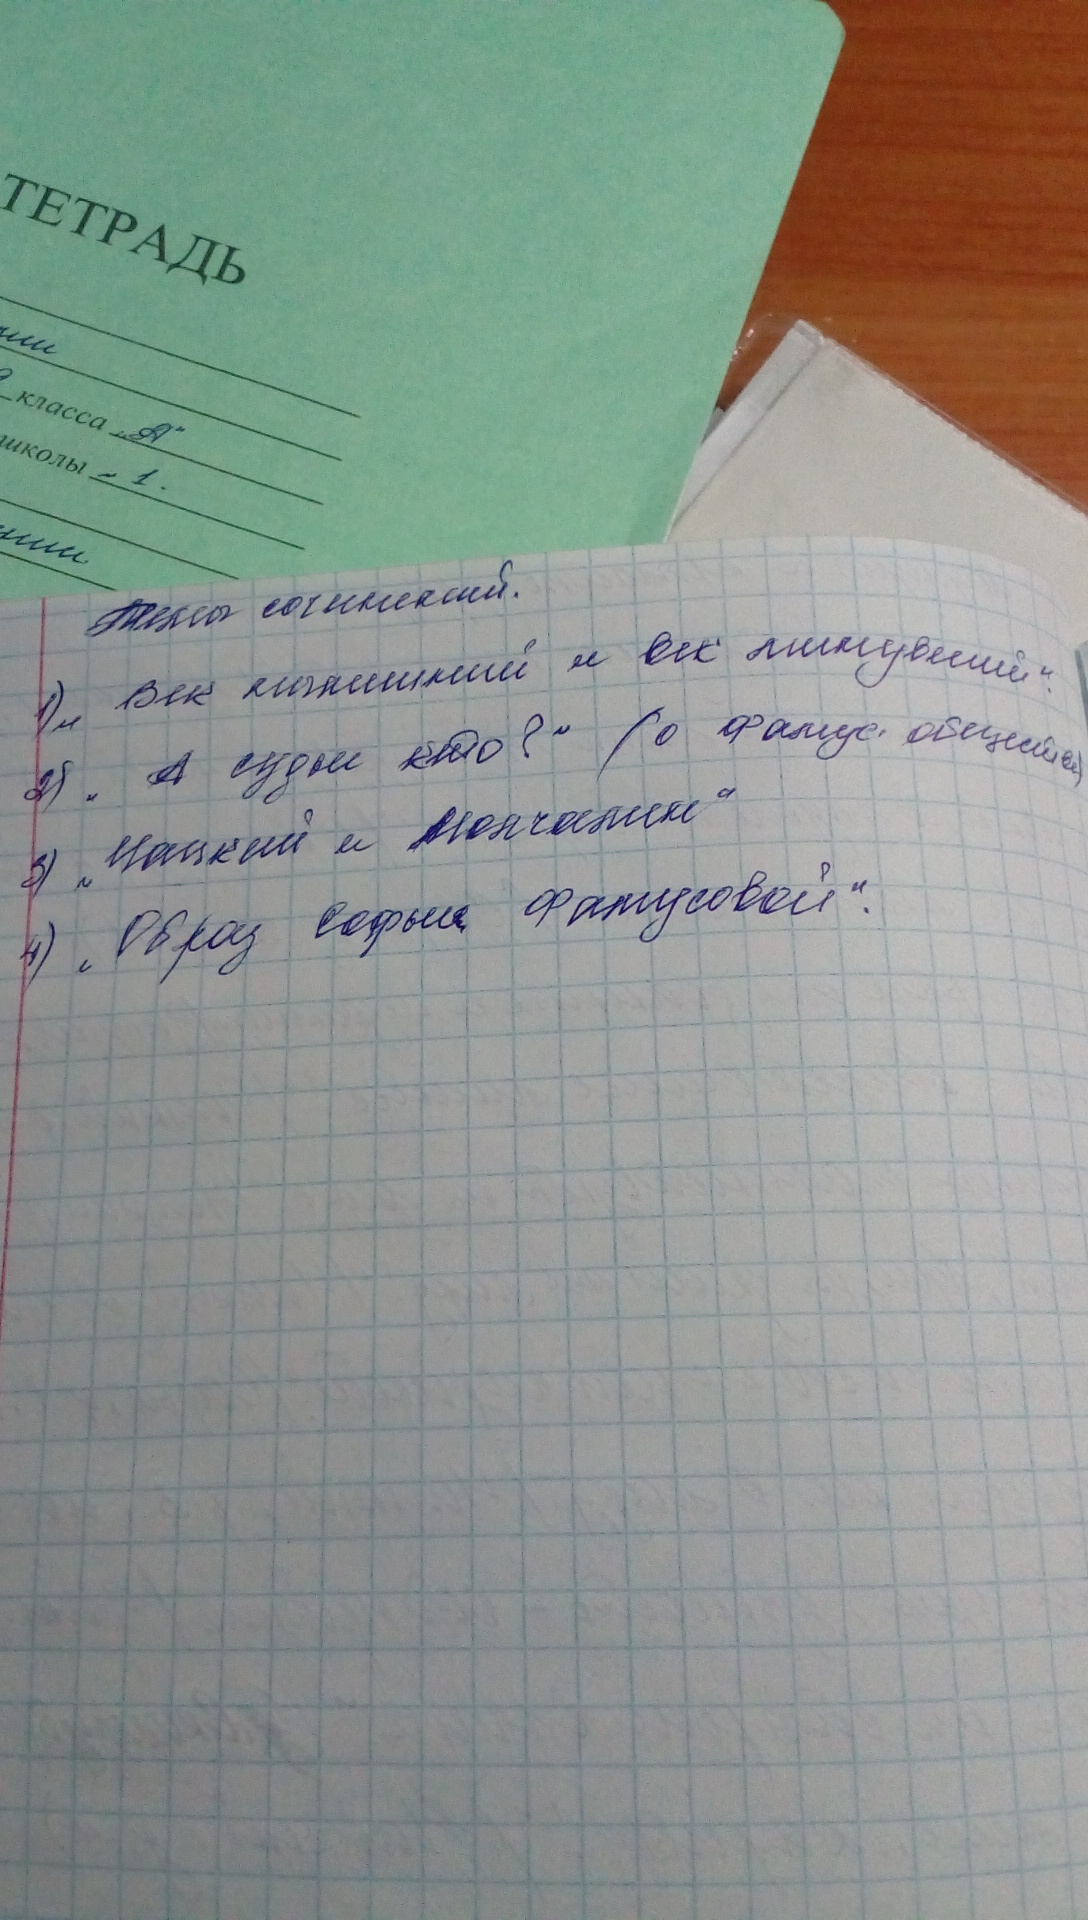 ТЕТРАДЬ
класса „А"
школы № 1.
Темы сочинений.
1) „Век нынешний и век минувший".
2) „А судьи кто?" (о фамус. обществе)
3) „Чацкий и Молчалин"
4) „Образ Софьи Фамусовой".